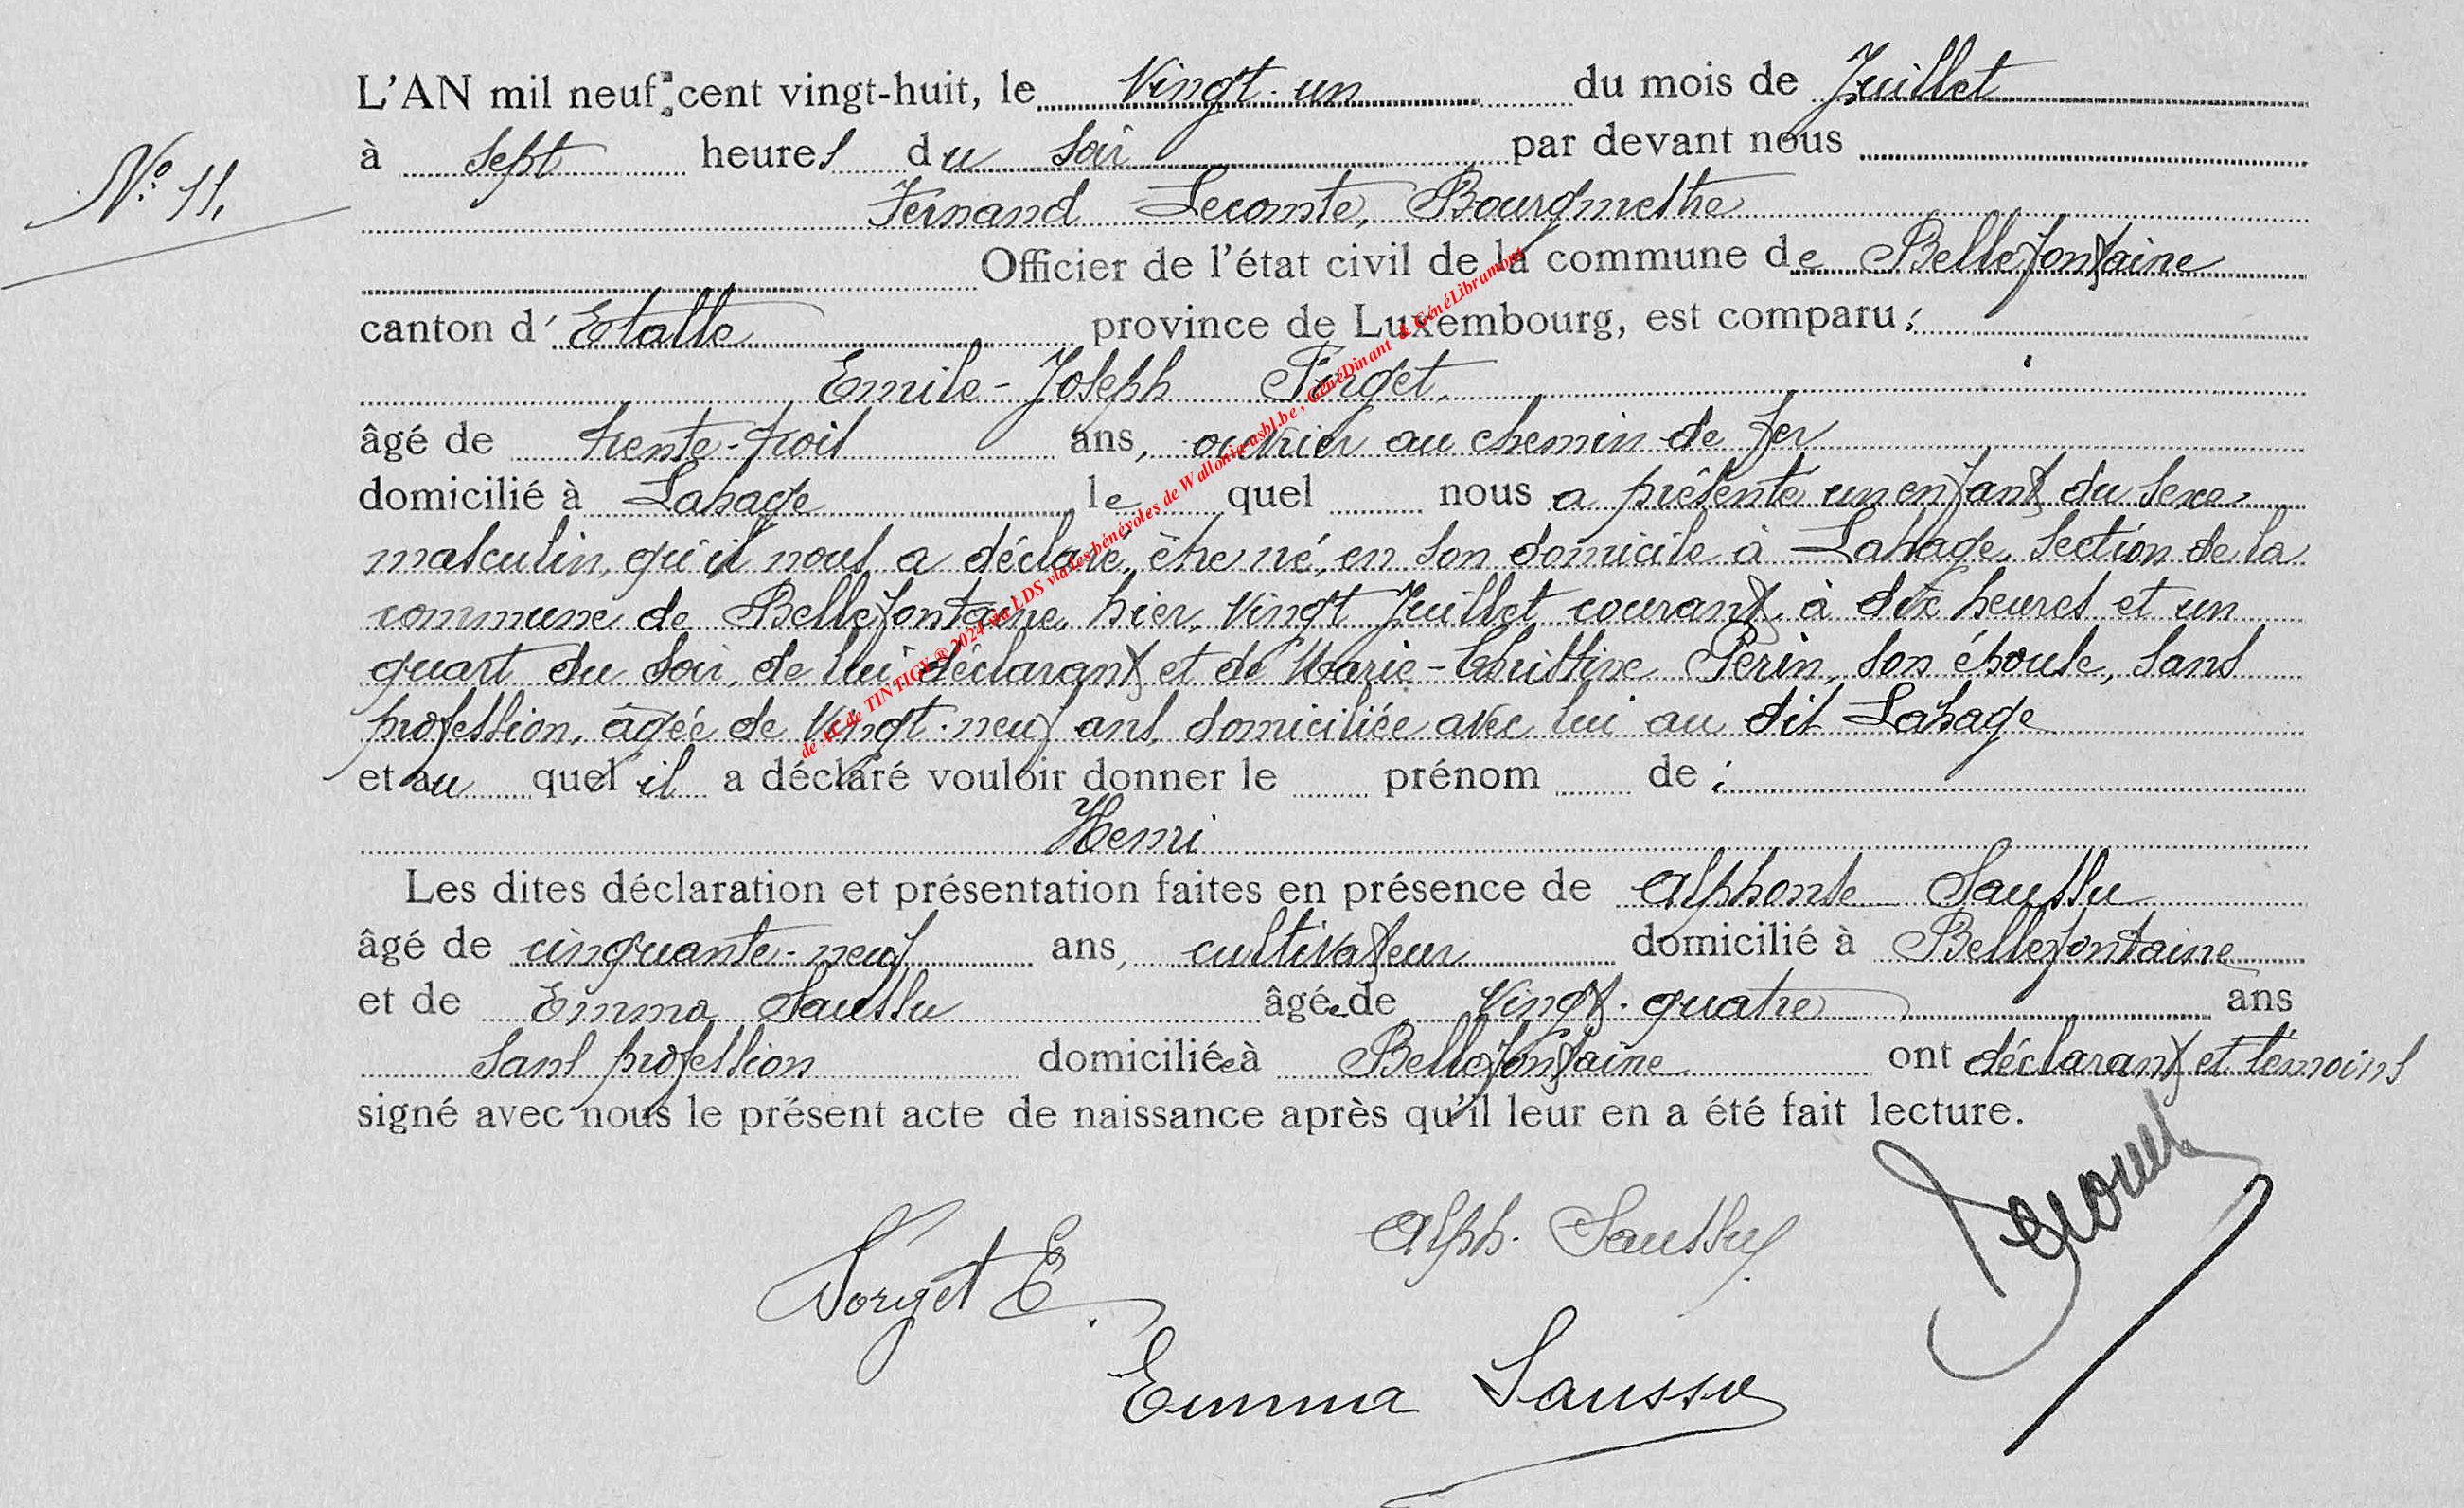 L'AN mil neuf cent vingt-huit, le Vingt-un du mois de Juillet
à sept heures du soir par devant nous
N° 11.
Fernand Lecomte, Bourgmestre
Officier de l'état civil de la commune de Bellefontaine
canton d'Etalle province de Luxembourg, est comparu :
Emile-Joseph
âgé de trente-trois ans, ouvrier au chemin de fer
domicilié à Lahage lequel nous a présenté un enfant du sexe
masculin, qu'il nous a déclaré être né, en son domicile à Lahage, section de la
commune de Bellefontaine, hier, vingt Juillet courant, à dix heures et un
quart du soir, de lui déclarant et de Marie-Christine Perin, son épouse, sans
profession, âgée de vingt-neuf ans, domiciliée avec lui au dit Lahage
et auquel il a déclaré vouloir donner le prénom de :
Henri
Les dites déclaration et présentation faites en présence de Alphonse Saussu
âgé de cinquante-neuf ans, cultivateur domicilié à Bellefontaine
et de Emma Saussu âgée de Vingt-quatre ans
sans profession domiciliée à Bellefontaine ont déclarant et témoins
signé avec nous le présent acte de naissance après qu'il leur en a été fait lecture.
Alph. Saussu
Emma Saussu
de AC de TINTIGY ® 2024 via LDS via les bénévoles de Wallonie asbl.be, GénéDinant & GénéLibramont